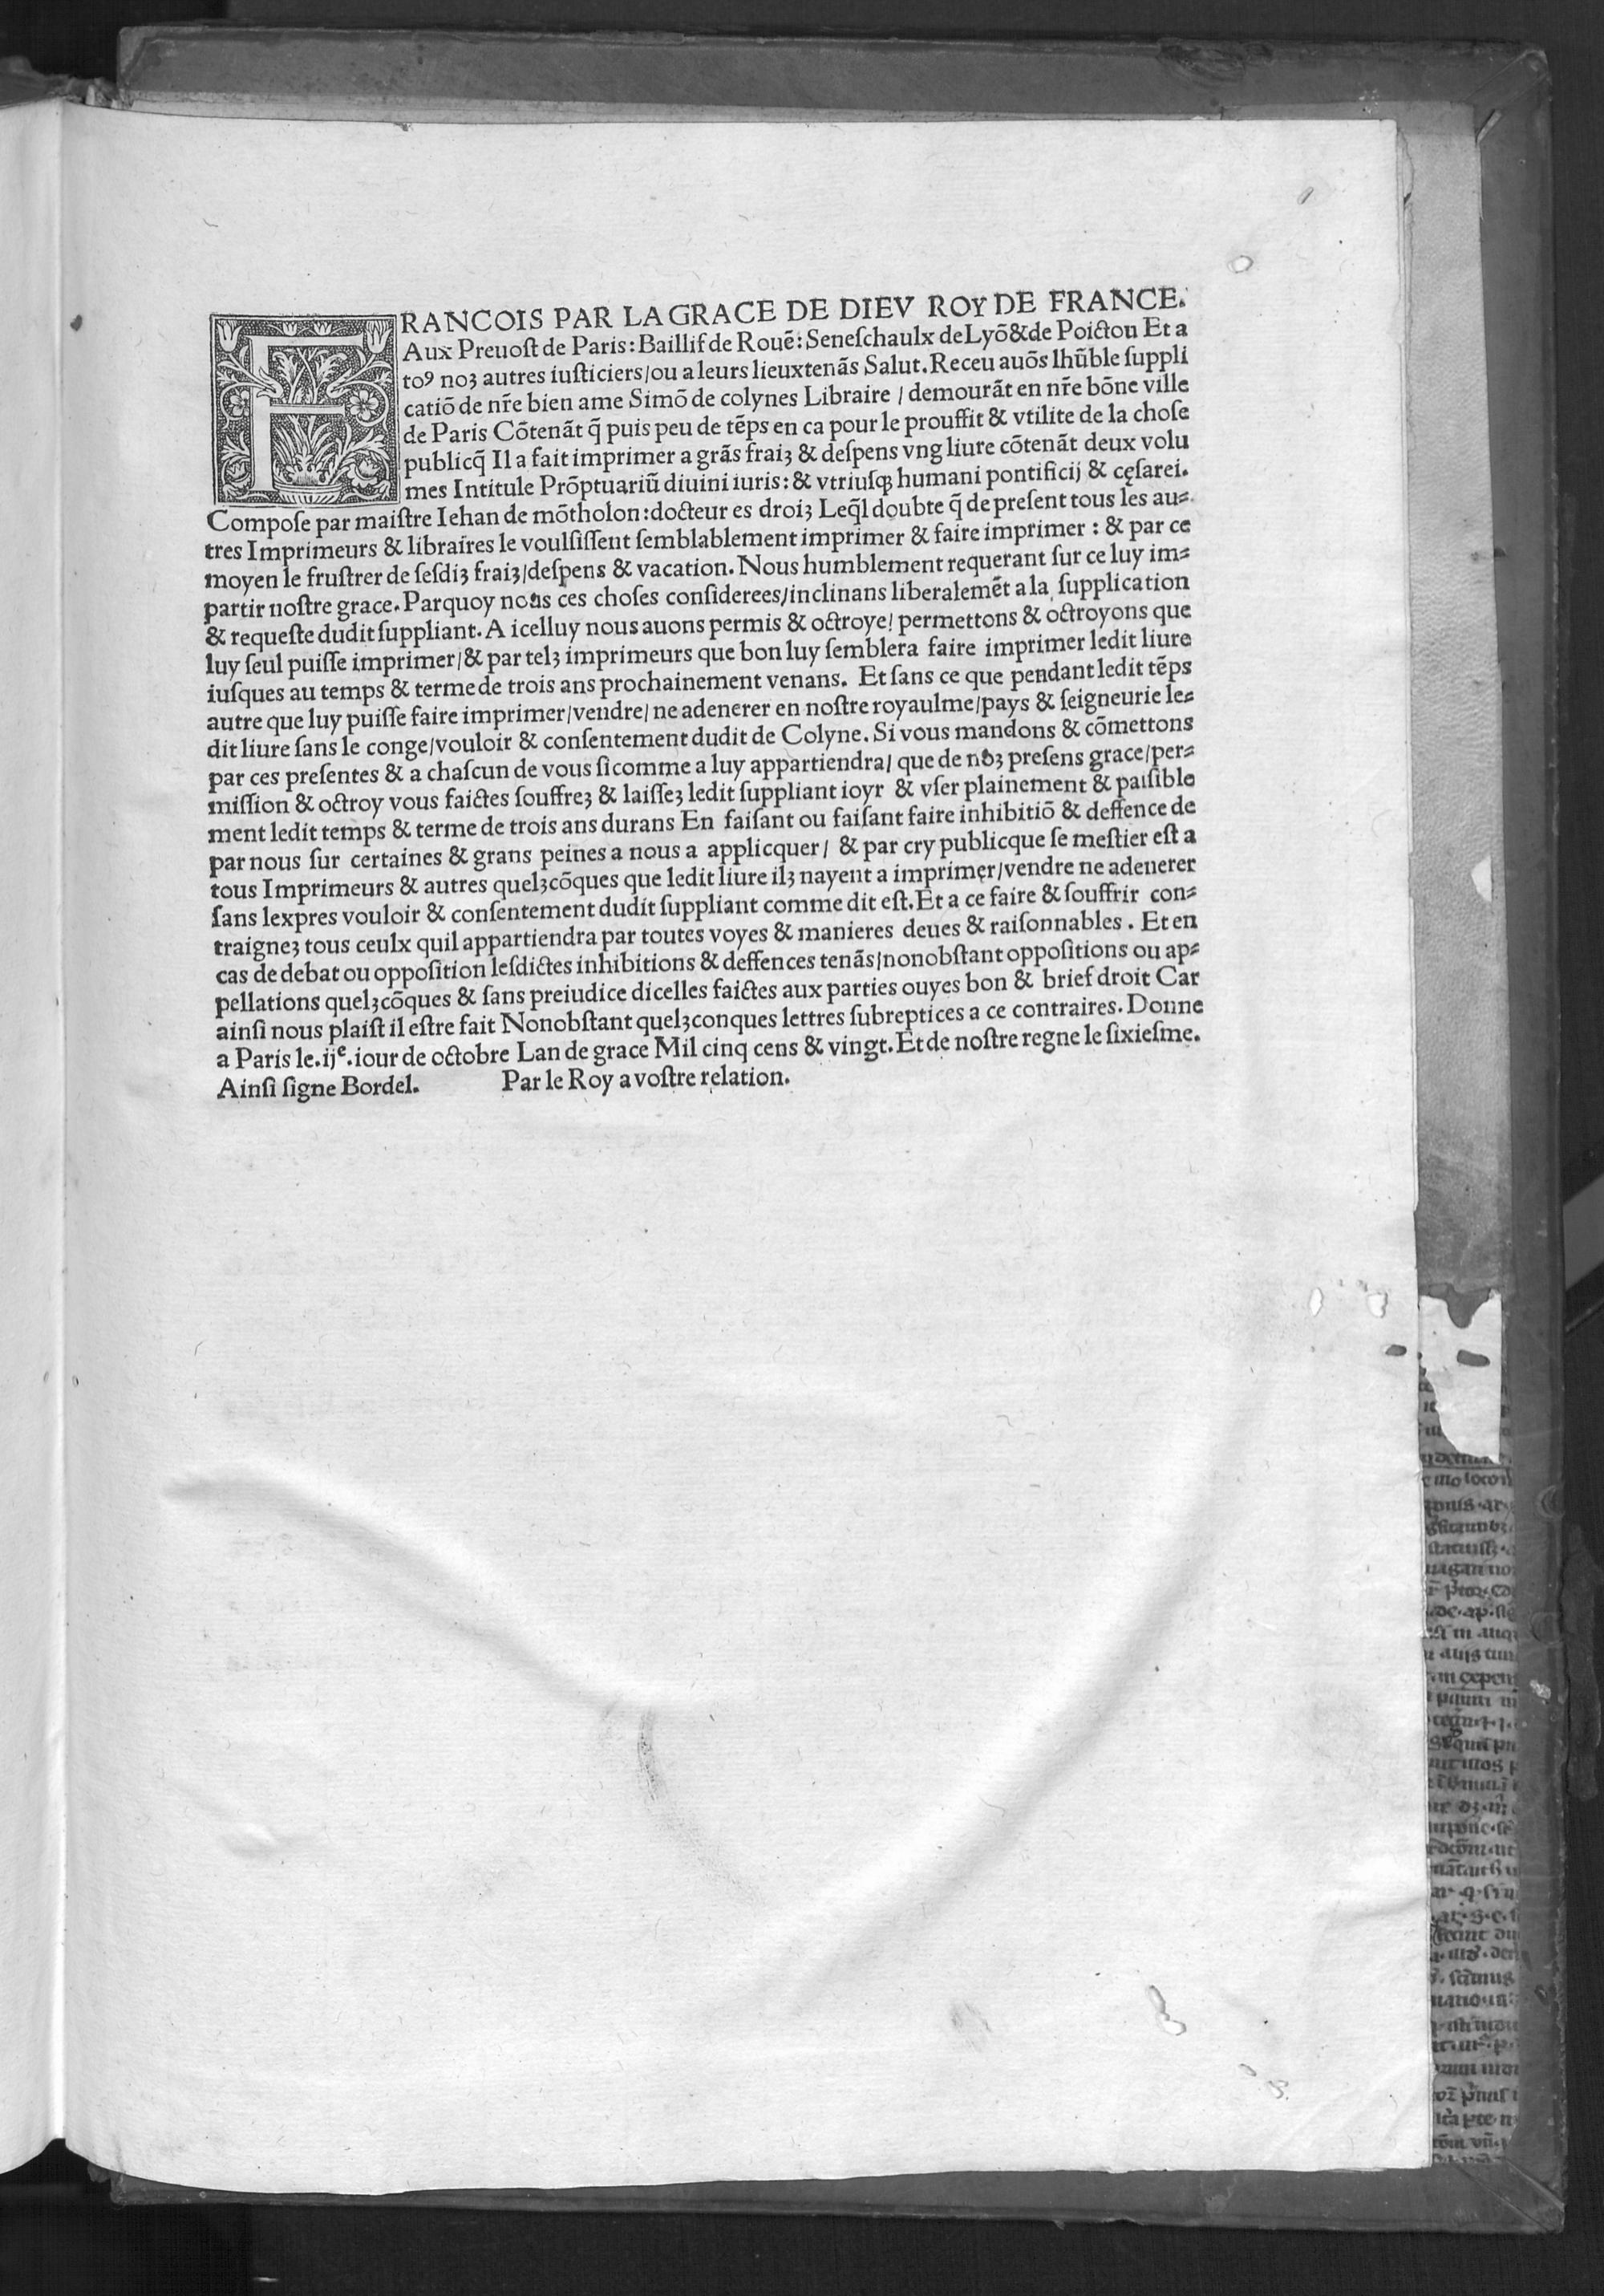 FRANCOIS PAR LA GRACE DE DIEV ROY DE FRANCE.
Aux Preuoſt de Paris: Baillif de Rouē: Seneſchaulx de Lyō & de Poictou Et a
toꝰ noʒ autres iuſticiers/ou a leurs lieuxtenās Salut. Receu auōs lhūble ſuppli
catiō de nr̄e bien ame Simō de colynes Libraire / demourāt en nr̄e bōne ville
de Paris Cōtenāt q̄ puis peu de tēps en ca pour le prouffit & vtilite de la choſe
publicq̄ Il a fait imprimer a grās fraiʒ & deſpens vng liure cōtenāt deux volu
mes Intitule Prōptuariū diuini iuris: & vtriuſqꝫ humani pontificij & cęſarei.
Compoſe par maiſtre Iehan de mōtholon: docteur es droiʒ Leq̄l doubte q̄ de preſent tous les au⸗
tres Imprimeurs & libraires le voulſiſſent ſemblablement imprimer & faire imprimer : & par ce
moyen le fruſtrer de ſeſdiʒ fraiʒ/deſpens & vacation. Nous humblement requerant ſur ce luy im⸗
partir noſtre grace. Parquoy nous ces choſes conſiderees/inclinans liberalemēt a la ſupplication
& requeſte dudit ſuppliant. A icelluy nous auons permis & octroye/ permettons & octroyons que
luy ſeul puiſſe imprimer/& par telʒ imprimeurs que bon luy ſemblera faire imprimer ledit liure
iuſques au temps & terme de trois ans prochainement venans. Et ſans ce que pendant ledit tēps
autre que luy puiſſe faire imprimer/vendre/ ne adenerer en noſtre royaulme/pays & ſeigneurie le⸗
dit liure ſans le conge/vouloir & conſentement dudit de Colyne. Si vous mandons & cōmettons
par ces preſentes & a chaſcun de vous ſicomme a luy appartiendra/ que de noʒ preſens grace/per⸗
miſſion & octroy vous faictes ſouffreʒ & laiſſeʒ ledit ſuppliant ioyr & vſer plainement & paiſible
ment ledit temps & terme de trois ans durans En faiſant ou faiſant faire inhibitiō & deffence de
par nous ſur certaines & grans peines a nous a applicquer/ & par cry publicque ſe meſtier eſt a
tous Imprimeurs & autres quelʒcōques que ledit liure ilʒ nayent a imprimer/vendre ne adenerer
ſans lexpres vouloir & conſentement dudit ſuppliant comme dit eſt. Et a ce faire & ſouffrir con⸗
traigneʒ tous ceulx quil appartiendra par toutes voyes & manieres deues & raiſonnables . Et en
cas de debat ou oppoſition leſdictes inhibitions & deffences tenās/nonobſtant oppoſitions ou ap⸗
pellations quelʒcōques & ſans preiudice dicelles faictes aux parties ouyes bon & brief droit Car
ainſi nous plaiſt il eſtre fait Nonobſtant quelʒconques lettres ſubreptices a ce contraires. Donne
a Paris le.ijᵉ.iour de octobre Lan de grace Mil cinq cens & vingt. Et de noſtre regne le ſixieſme.
Ainſi ſigne Bordel. Par le Roy a voſtre relation.